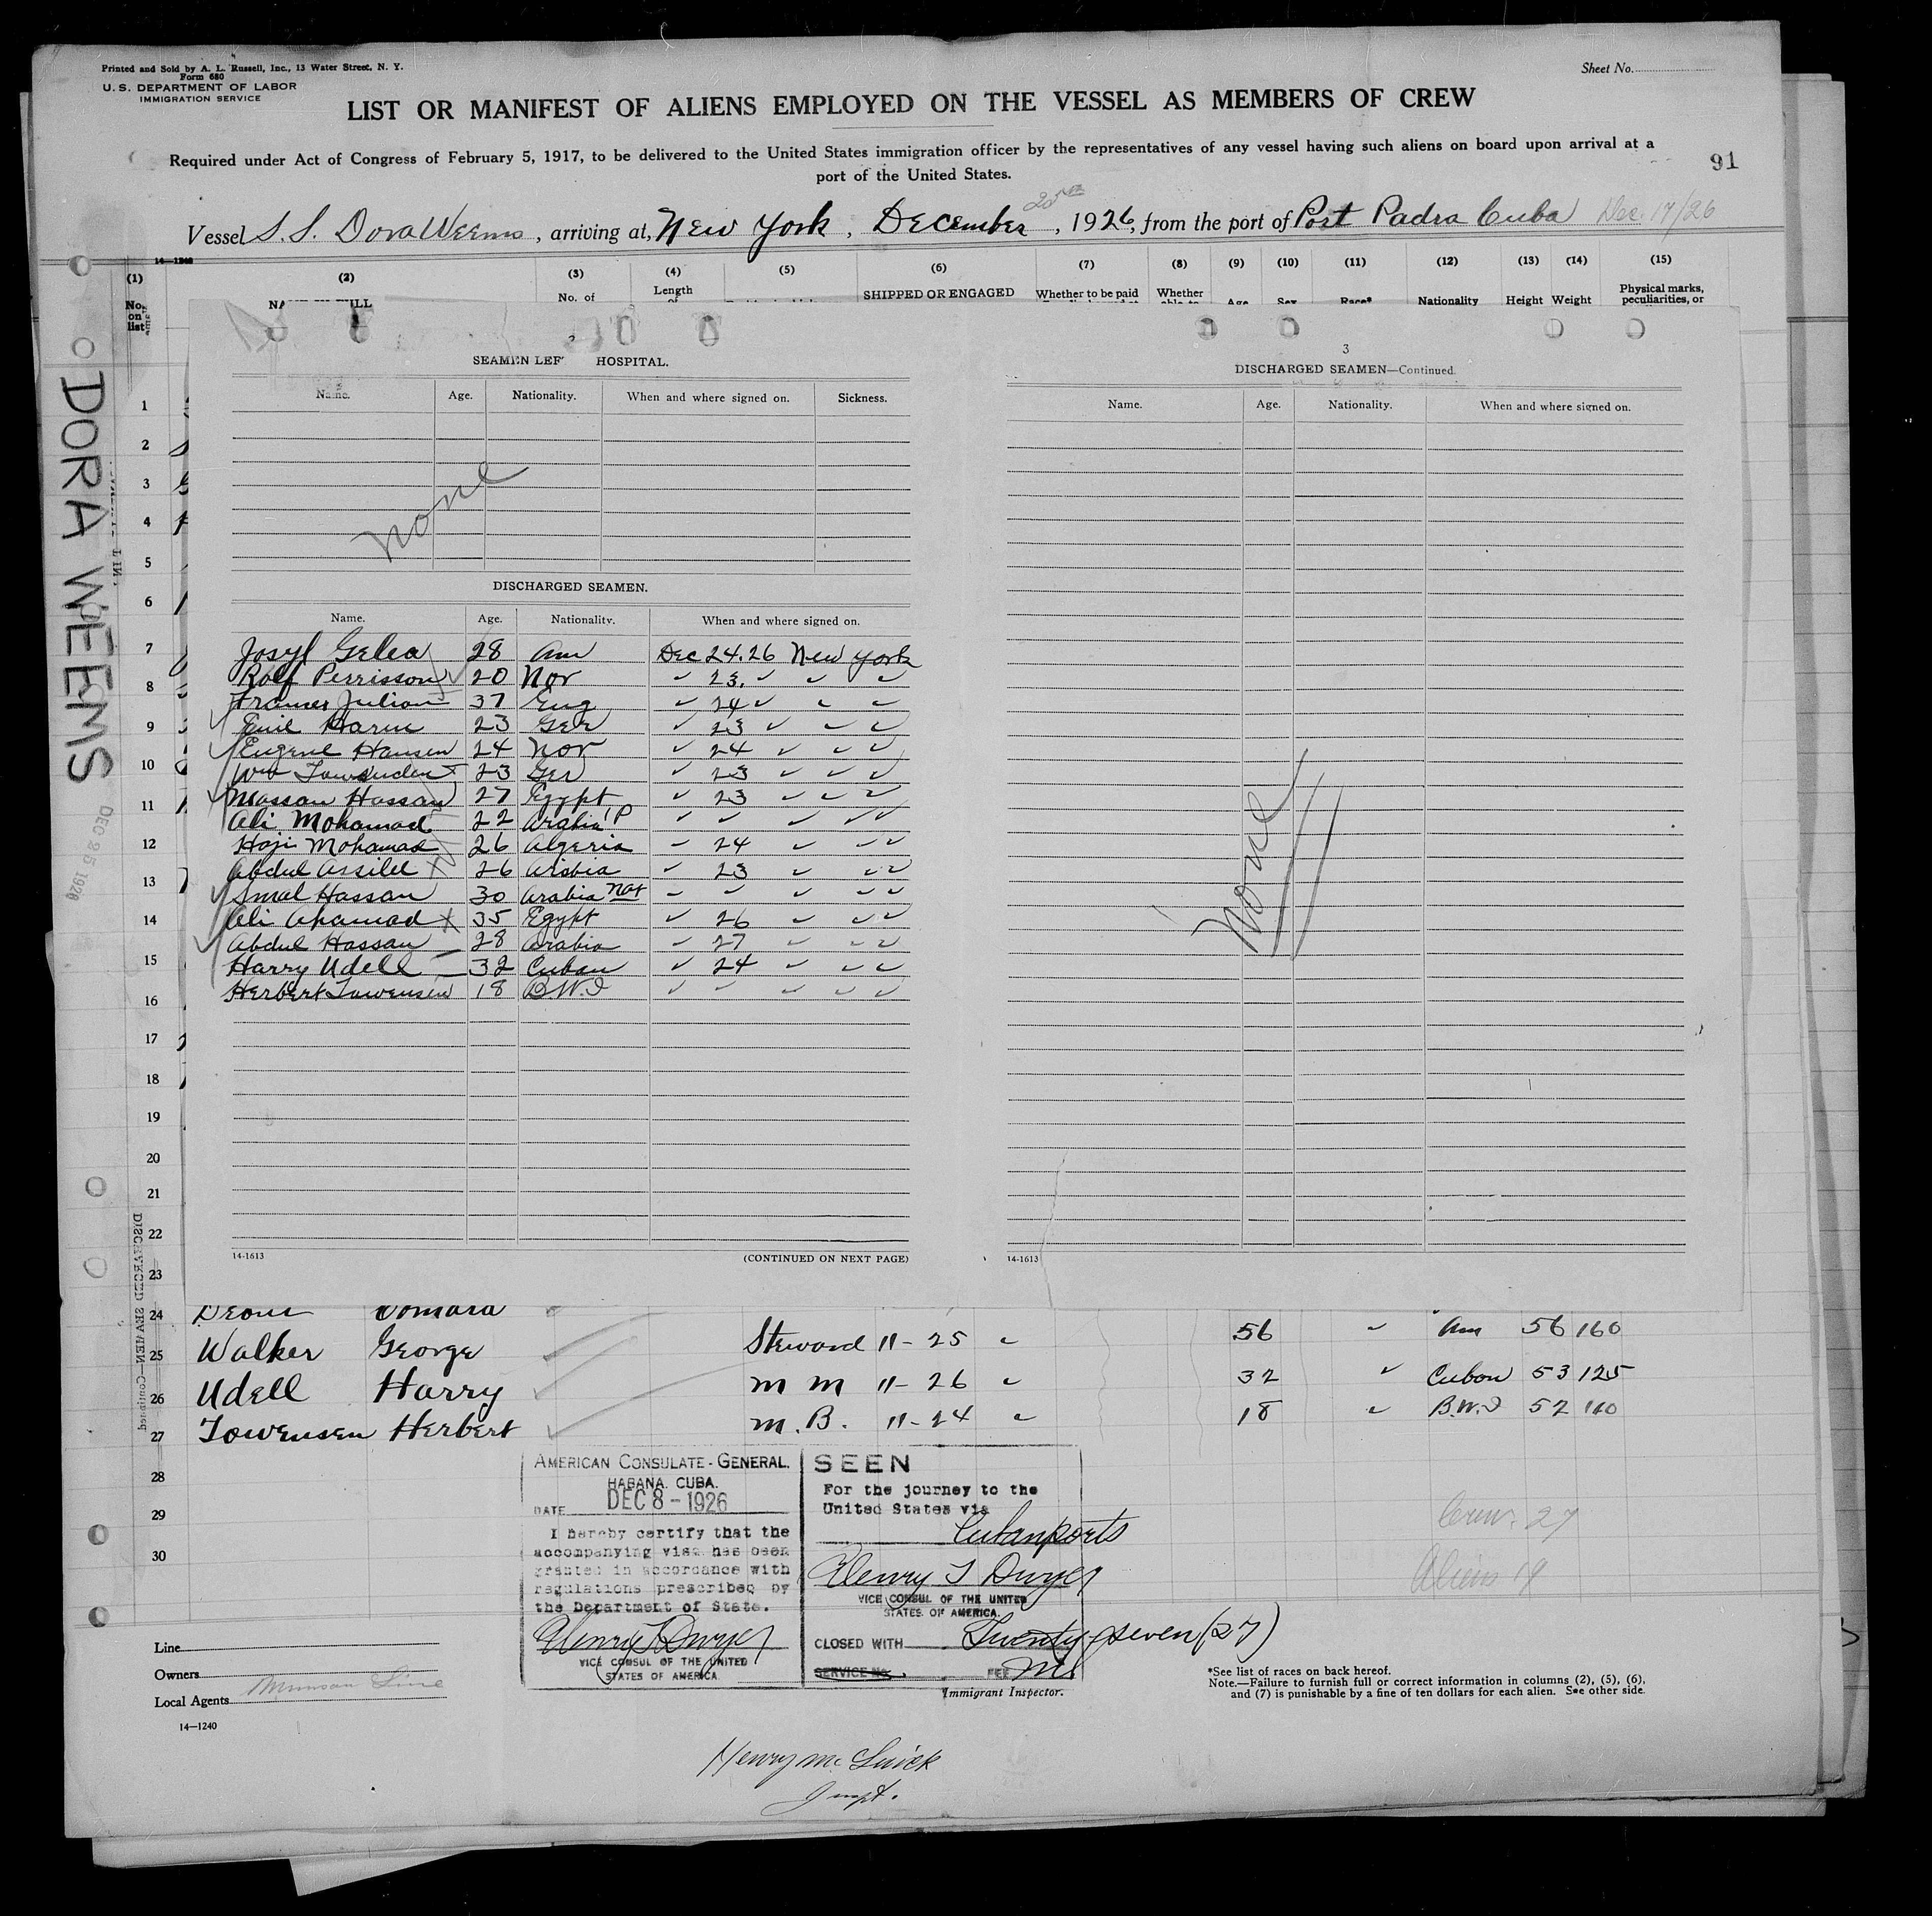 Printed and Sold by A. L. Russell, Inc., 13 Water Street, N. Y.
Form 680
U. S. DEPARTMENT OF LABOR
IMMIGRATION SERVICE
Sheet No.
LIST OR MANIFEST OF ALIENS EMPLOYED ON THE VESSEL AS MEMBERS OF CREW
Required under Act of Congress of February 5, 1917, to be delivered to the United States immigration officer by the representatives of any vessel having such aliens on board upon arrival at a
port of the United States.
91
Vessel S.S. Dora Weems, arriving at, New York, December 25th, 1926, from the port of Port Padra Cuba Dec. 17/26
14—1240
(1) (2) (3) (4) (5) (6) (7) (8) (9) (10) (11) (12) (13) (14) (15)
No. on list
No. of
Length
SHIPPED OR ENGAGED
Whether to be paid
Whether
Age
Sex
Race*
Nationality
Height
Weight
Physical marks, peculiarities, or
DORA WEEMS
DEC 25 1926
2
SEAMEN LEF HOSPITAL.
Name. Age. Nationality. When and where signed on. Sickness.
none
DISCHARGED SEAMEN.
Name. Age. Nationality. When and where signed on.
Josyf Gelea 28 Am Dec 24.26 New York
Rolf Perrisson 20 Nor " 23. " " "
Francis Julian 37 Eng " 24 " " "
Emil Harm 23 Ger " 23 " " "
Eugene Hansen 24 Nor " 24 " " "
Wm 23 Ger " 23 " " "
Massan Hassan 27 Egypt " 23 " " "
Ali Mohamad 22 Arabia " " " " "
Haji Mohamad 26 Algeria " 24 " " "
Abdul Assilel 26 Arabia " 23 " " "
Smal Hassan 30 Arabia not " " " " "
Ali Ahamad X 35 Egypt " 26 " " "
Abdul Hassan 28 Arabia " 27 " " "
Harry Udell 32 Cuban " 24 " " "
Herbert Towensen 18 B.W.I " " " " "
14-1613
(CONTINUED ON NEXT PAGE)
3
DISCHARGED SEAMEN—Continued.
Name. Age. Nationality. When and where signed on.
none
14-1613
1
2
3
4
5
6
7
8
9
10
11
12
13
14
15
16
17
18
19
20
21
22
23
DISCHARGED SEAMEN—Continued
24
25 Walker George Steward 11-25 " 56 " Am 56 160
26 Udell Harry m m 11-26 " 32 " Cuban 53 125
27 Towensen Herbert m. B. 11-24 " 18 " B.W.I 52 110
28
29
30
AMERICAN CONSULATE-GENERAL.
HABANA. CUBA.
DATE DEC 8-1926
I hereby certify that the
accompanying visa has been
granted in accordance with
regulations prescribed by
the Department of State.
Henry T Dwyer
VICE CONSUL OF THE UNITED
STATES OF AMERICA
SEEN
For the journey to the
United States via
Cuban ports
Henry T Dwyer
VICE CONSUL OF THE UNITED
STATES OF AMERICA.
CLOSED WITH Twenty-seven (27)
SERVICE No. FEE
Immigrant Inspector.
Crew. 27
Aliens 19
Line
Owners
Local Agents Munson Line
14—1240
*See list of races on back hereof.
Note.—Failure to furnish full or correct information in columns (2), (5), (6),
and (7) is punishable by a fine of ten dollars for each alien. See other side.
Henry
Inspt.